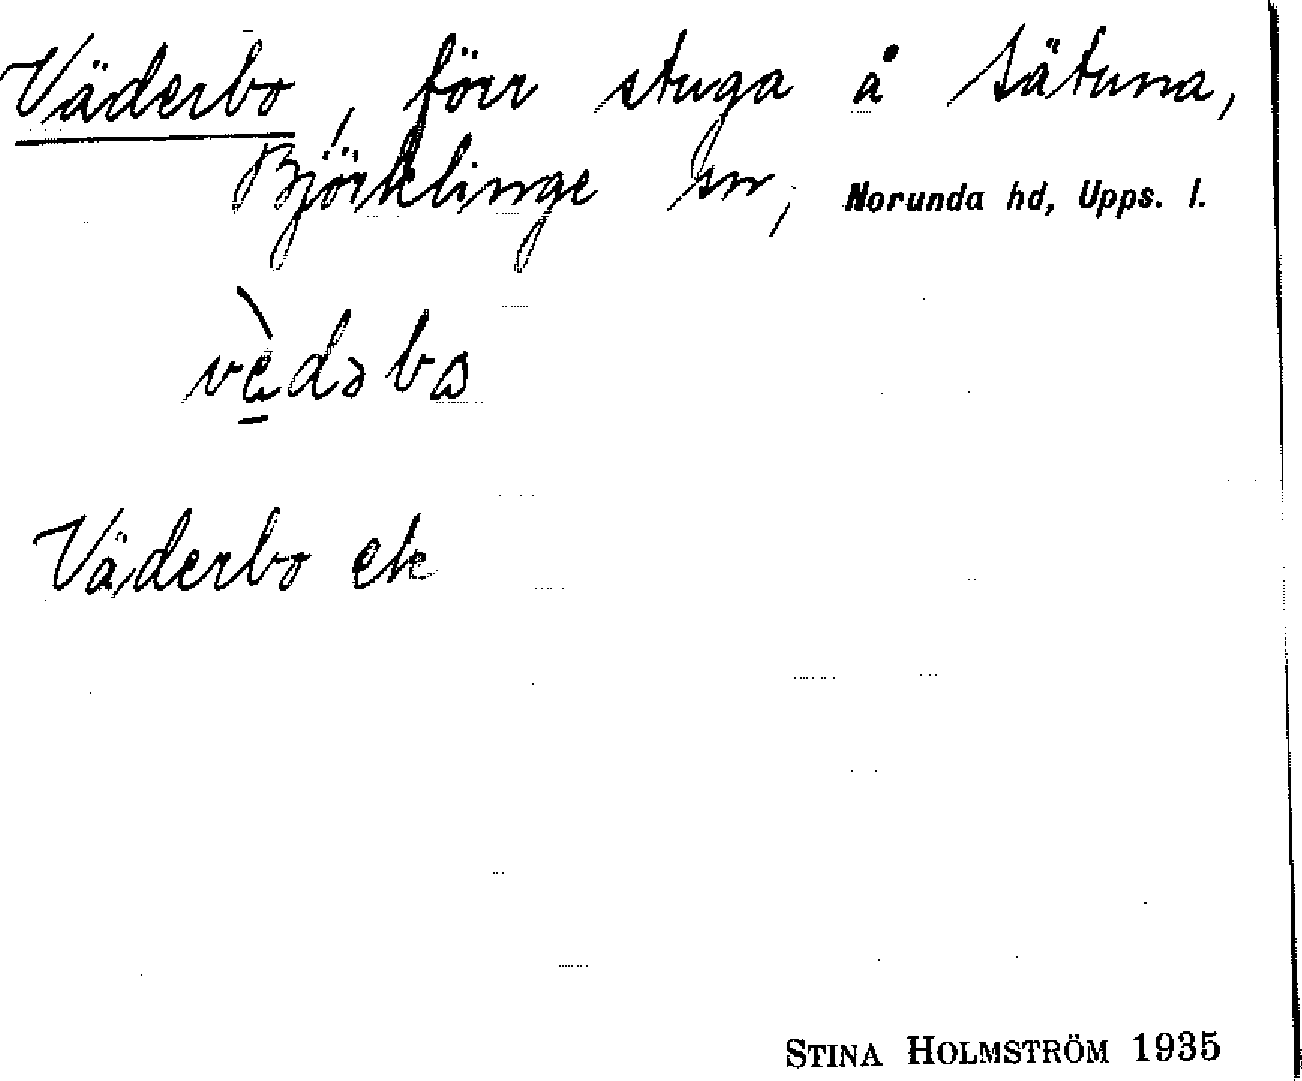 Väderbo, förr stuga å Sätuna,
Björklinge sn, Norunda hd, Upps. l.
vèdəbo
Väderbo ek
STINA HOLMSTRÖM 1935